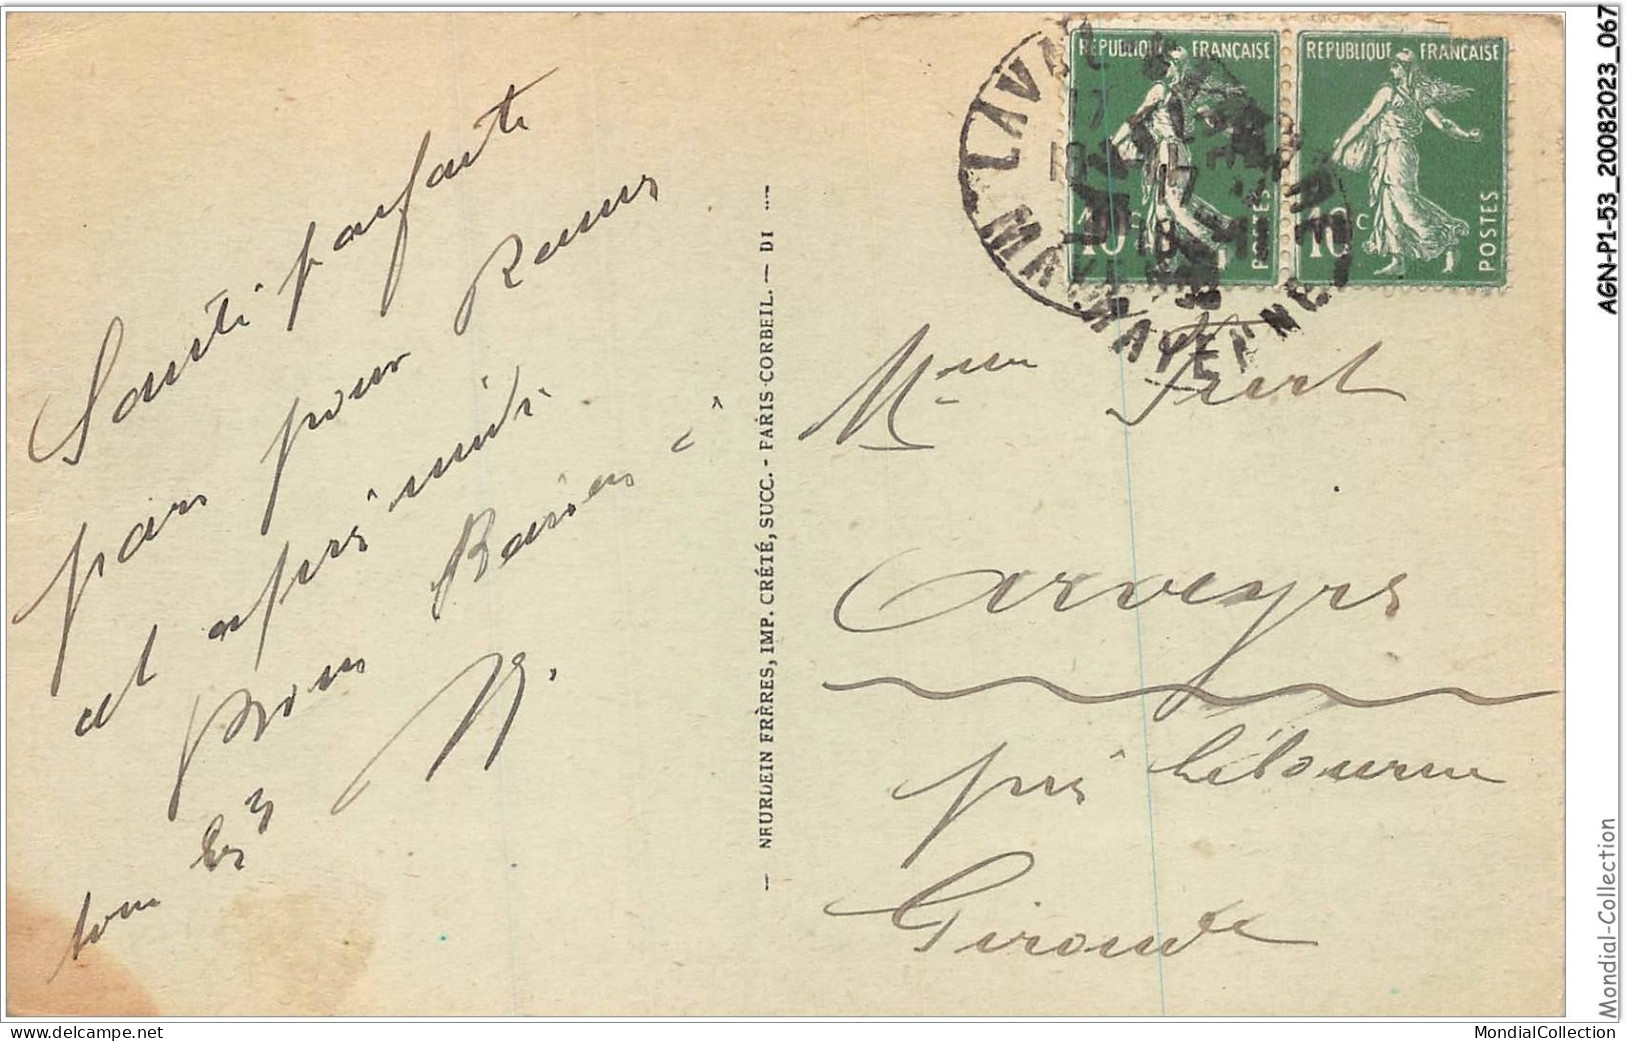 Santé parfaite
pour
et après midi
Bons Baisers à
tous les 3
NEURDEIN FRÈRES, IMP. CRÉTÉ, SUCC. - PARIS-CORBEIL. — DI
RÉPUBLIQUE FRANÇAISE
10c
POSTES
RÉPUBLIQUE FRANÇAISE
10c
POSTES
LAVAL
MAYENNE
Mme
Arveyres
près Libourne
Gironde
AGN-P1-53_20082023_067
Mondial-Collection
www.delcampe.net
MondialCollection